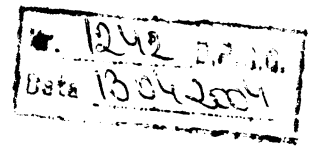 Nr. 1242
Data 13.04.2004